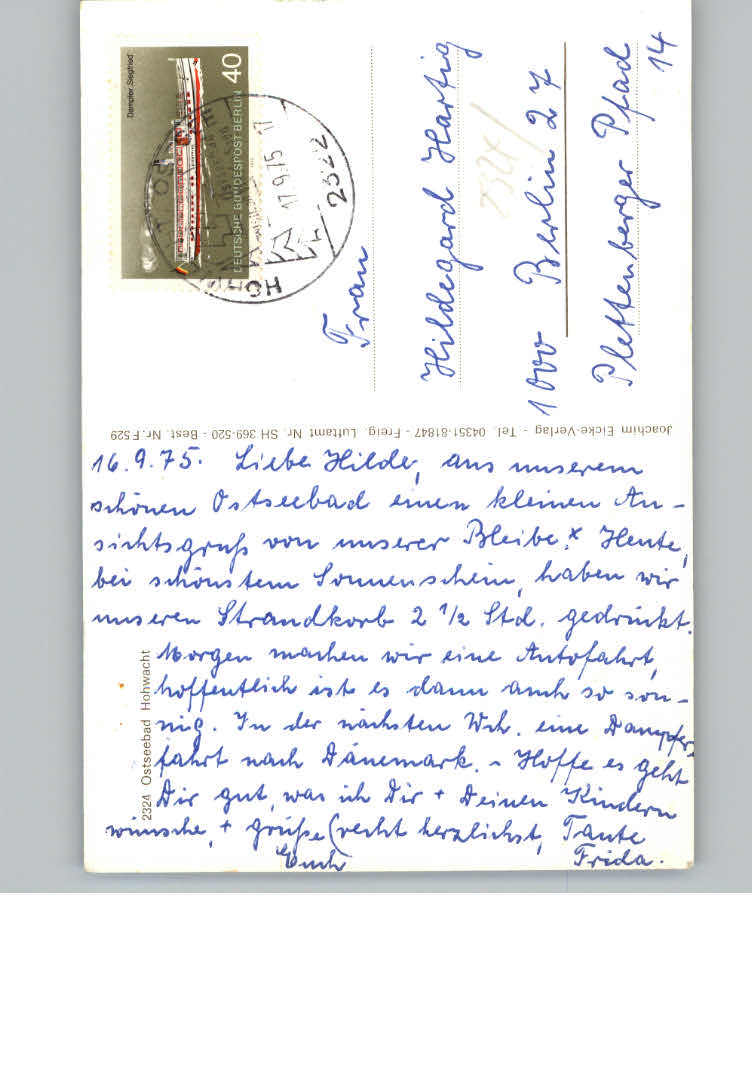 16.9.75. Liebe Hilde, aus unserem
schönen Ostseebad einen kleinen An-
sichtsgruß von unserer Bleibe.x Heute,
bei schönstem Sonnenschein, haben wir
unseren Strandkorb 2 1/2 Std. gedrückt.
Morgen machen wir eine Autofahrt,
hoffentlich ist es dann auch so son-
nig. In der nächsten Wch. eine Dampfer-
fahrt nach Dänemark. - Hoffe es geht
Dir gut, was ich Dir + Deinen Kindern
wünsche, + grüße (recht herzlichst, Tante
Euch Frida.
2324 Ostseebad Hohwacht
Joachim Eicke-Verlag - Tel. 04351-81847 - Freig. Luftamt Nr. SH 369-520 - Best. Nr. F 529
Frau
Hildegard Hartig
1000 Berlin 27
Plettenberger Pfad
14
Dampfer „Siegfried“
40
DEUTSCHE BUNDESPOST BERLIN
2322
17.9.75